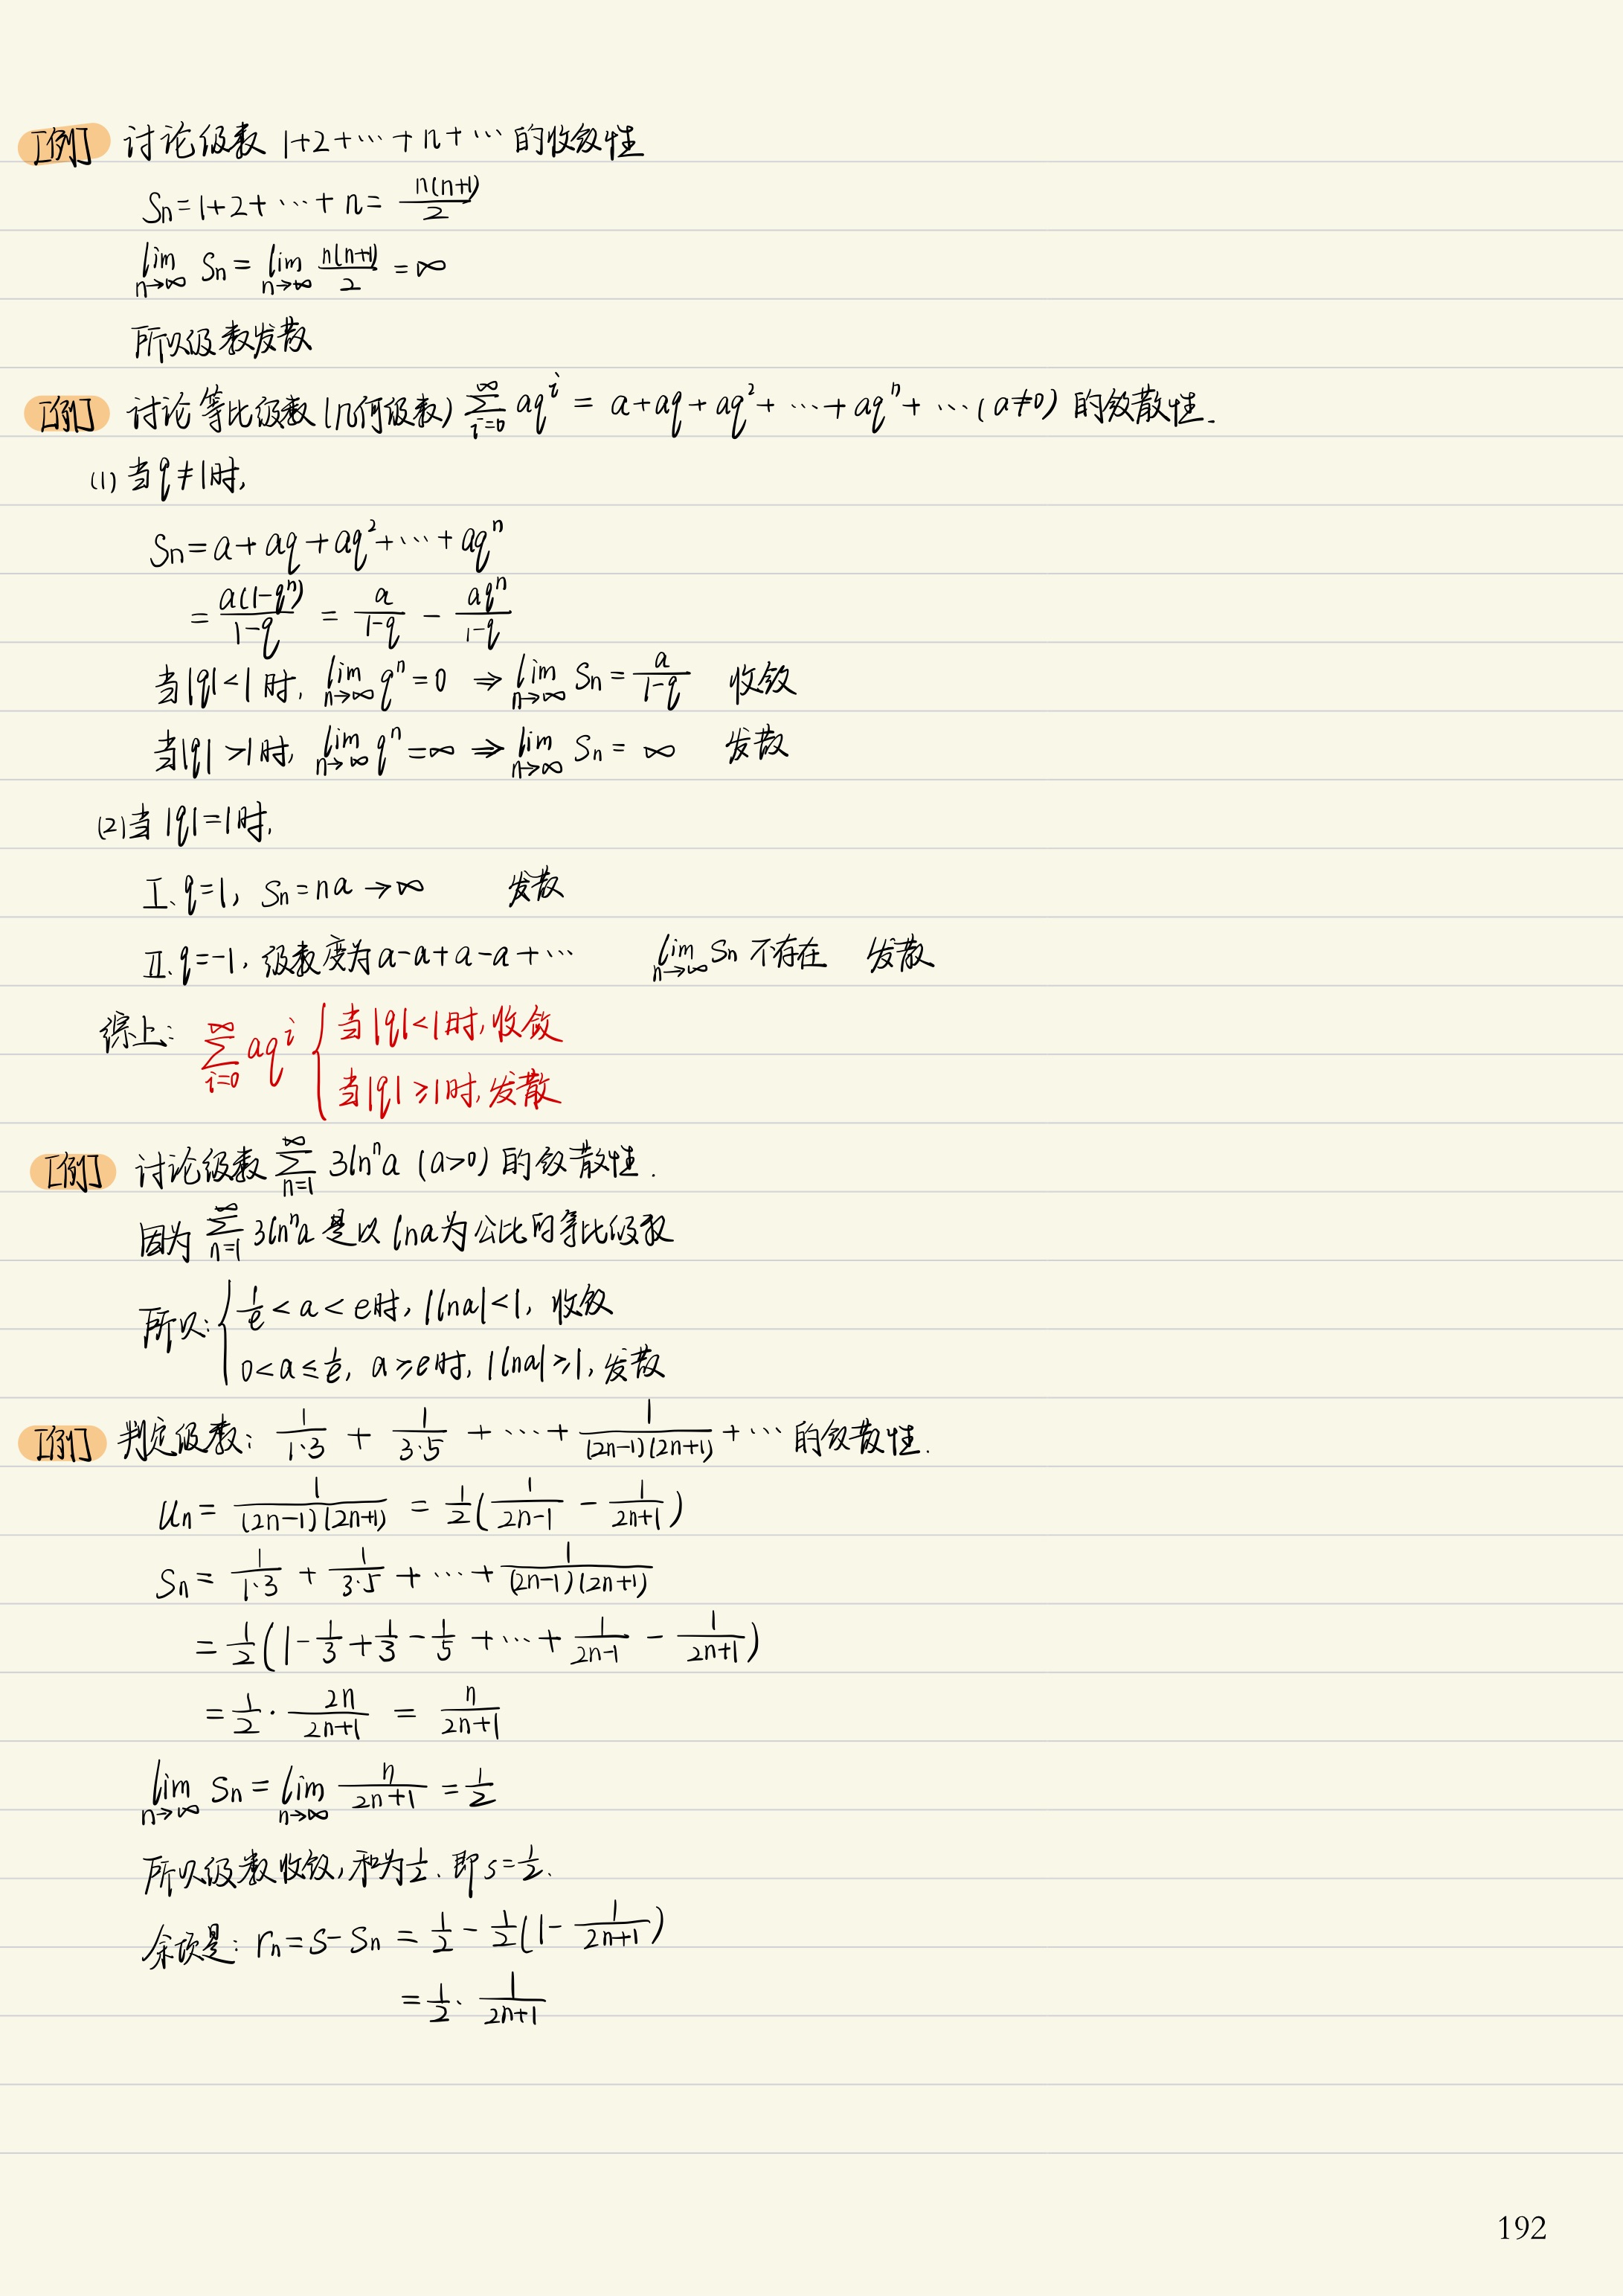 [例] 讨论级数 1+2+⋯+n+⋯ 的收敛性
Sn=1+2+⋯+n= n(n+1)/2
lim n→∞ Sn= lim n→∞ n(n+1)/2 =∞
所以级数发散
[例] 讨论等比级数(几何级数) ∑_{i=0}^{∞} aq^i = a+aq+aq²+⋯+aq^n+⋯(a≠0) 的敛散性.
(1) 当q≠1时,
Sn=a+aq+aq²+⋯+aq^n
= a(1-q^n)/(1-q) = a/(1-q) - aq^n/(1-q)
当|q|<1时, lim n→∞ q^n=0 ⇒ lim n→∞ Sn= a/(1-q) 收敛
当|q|>1时, lim n→∞ q^n=∞ ⇒ lim n→∞ Sn= ∞ 发散
(2)当|q|=1时,
Ⅰ. q=1, Sn=na→∞ 发散
Ⅱ. q=-1, 级数变为a-a+a-a+⋯ lim n→∞ Sn 不存在 发散
综上: ∑_{i=0}^{∞} aq^i { 当|q|<1时,收敛
当|q|≥1时,发散
[例] 讨论级数 ∑_{n=1}^{∞} 3ln^n a (a>0) 的敛散性.
因为 ∑_{n=1}^{∞} 3ln^n a 是以 lna为公比的等比级数
所以: { 1/e < a < e时, |lna|<1, 收敛
0<a≤1/e, a≥e时, |lna|≥1, 发散
[例] 判定级数: 1/(1·3) + 1/(3·5) +⋯+ 1/((2n-1)(2n+1)) +⋯ 的敛散性.
Un= 1/((2n-1)(2n+1)) = 1/2(1/(2n-1) - 1/(2n+1))
Sn= 1/(1·3) + 1/(3·5) +⋯+ 1/((2n-1)(2n+1))
= 1/2(1-1/3+1/3-1/5+⋯+1/(2n-1) - 1/(2n+1))
= 1/2 · 2n/(2n+1) = n/(2n+1)
lim n→∞ Sn= lim n→∞ n/(2n+1) = 1/2
所以级数收敛,和为1/2. 即s=1/2.
余项是: rn=s-Sn = 1/2 - 1/2(1- 1/(2n+1))
= 1/2 · 1/(2n+1)
192